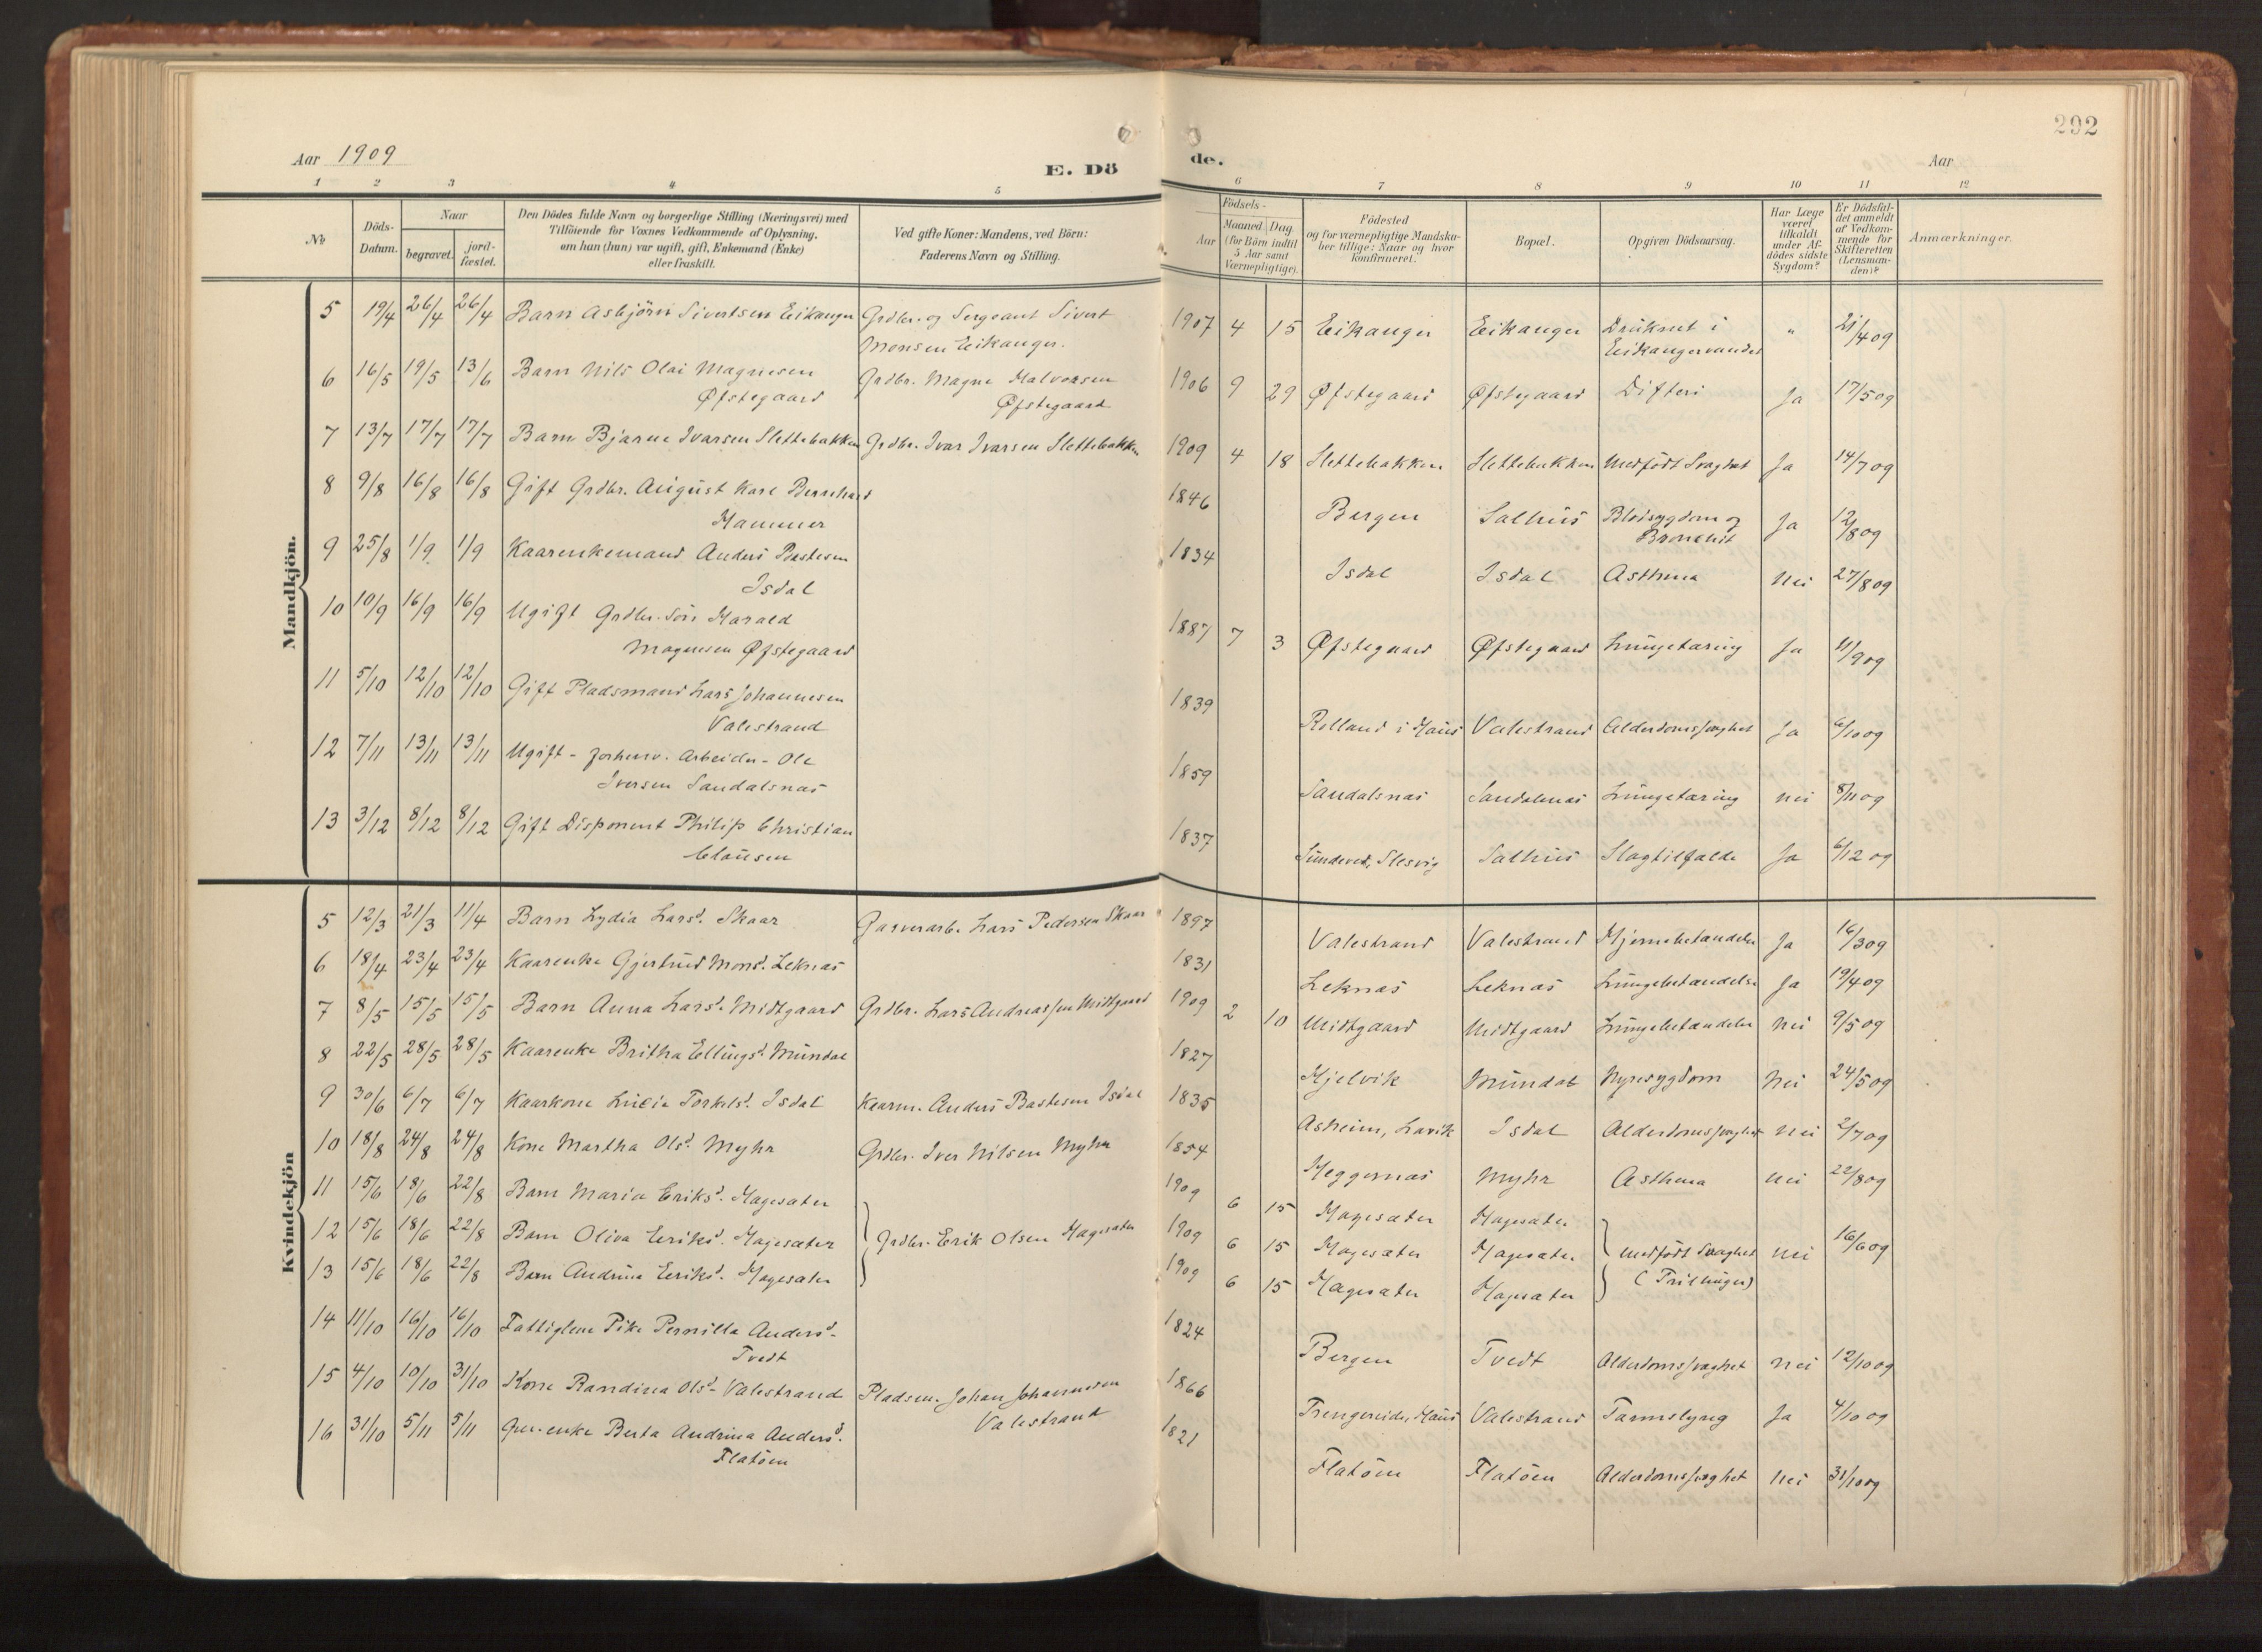 292
Aar 1909
E. Dö
de.
Aar
1 2 3 4 5 6 7 8 9 10 11 12
Nr
Döds-Datum.
Naar
begravet.
jord-fæstet.
Den Dödes fulde Navn og borgerlige Stilling (Næringsvei) med
Tilföiende for Voxnes Vedkommende af Oplysning,
om han (hun) var ugift, gift, Enkemand (Enke)
eller fraskilt.
Ved gifte Koner: Mandens, ved Börn:
Faderens Navn og Stilling.
Födsels-
Aar
Maaned
Dag
(for Börn indtil
5 Aar samt
Værnepligtige).
Födested
og for værnepligtige Mandska-
ber tillige: Naar og hvor
konfirmeret.
Bopæl.
Opgiven Dödsaarsag.
Har Læge
været
tilkaldt
under Af-
dödes sidste
Sygdom?
Er Dödsfal-
det anmeldt
af Vedkom-
mende for
Skifteretten
(Lensman-
den)?
Anmærkninger.
Mandkjön.
5 19/4 26/4 26/4 Barn Asbjörn Sivertsen Eikanger Grdbr. og Sergeant Sivert 1907 4 15 Eikanger Eikanger Druknet i " 21/4 09
Monsen Eikanger. Eikangervandet
6 16/5 19/5 13/6 Barn Nils Olai Magnesen Grdbr. Magne Halvorsen 1906 9 29 Øfstegaard Øfstegaard Difteri Ja 17/5 09
Øfstegaard Øfstegaard
7 13/7 17/7 17/7 Barn Bjarne Ivarsen Slettebakken Grdbr. Ivar Ivarsen Slettebakken 1909 4 18 Slettebakken Slettebakken Medfödt Svaghet Ja 14/7 09
8 9/8 16/8 16/8 Gift Grdbr. August Karl Bernhard 1846 Bergen Salhus Blodsygdom og Ja 12/8 09
Hammer Bronchit
9 25/8 1/9 1/9 Kaarenkemand Anders Bastesen 1834 Isdal Isdal Asthma Nei 27/8 09
Isdal
10 10/9 16/9 16/9 Ugift Grdbr. Sön Harald 1887 7 3 Øfstegaard Øfstegaard Lungetæring Ja 11/9 09
Magnesen Øfstegaard
11 5/10 12/10 12/10 Gift Pladsmand Lars Johannesen 1839 Rolland i Haus Valestrand Alderdomssvaghet Ja 6/10 09
Valestrand
12 7/11 13/11 13/11 Ugift - forhenv. Arbeider - Ole 1859 Sandalsnæs Sandalsnæs Lungetæring Nei 8/11 09
Iversen Sandalsnæs
13 3/12 8/12 8/12 Gift Disponent Philip Christian 1837 Sundeved, Slesvig Salhus Slagtilfælde Ja 6/12 09
Clausen
Kvindekjön
5 12/3 21/3 11/4 Barn Lydia Larsd. Skaar Garverarb. Lars Pedersen Skaar 1897 Valestrand Valestrand Hjernebetændelse Ja 16/3 09
6 18/4 23/4 23/4 Kaarenke Gjertrud Monsd. Leknæs 1831 Leknæs Leknæs Lungebetændelse Ja 19/4 09
7 8/5 15/5 15/5 Barn Anna Larsd. Midtgaard Grdbr. Lars Andreassen Midtgaard 1909 2 10 Midtgaard Midtgaard Lungebetændelse Nei 9/5 09
8 22/5 28/5 28/5 Kaarenke Britha Ellingsd. Mundal 1827 Hjelvik Mundal Nyresygdom Nei 24/5 09
9 30/6 6/7 6/7 Kaarkone Lucia Torkelsd. Isdal Kaarm. Anders Bastesen Isdal 1835 Asheim, Lavik Isdal Alderdomssvaghet Nei 2/7 09
10 18/8 24/8 24/8 Kone Martha Olsd. Myhr Grdbr. Iver Nilsen Myhr 1854 Heggernæs Myhr Asthma Nei 22/8 09
11 15/6 18/6 22/8 Barn Maria Eriksd. Hagesæter 1909 6 15 Hagesæter Hagesæter
12 15/6 18/6 22/8 Barn Oliva Eriksd. Hagesæter Grdbr. Erik Olsen Hagesæter 1909 6 15 Hagesæter Hagesæter Medfödt Svaghet Nei 16/6 09
13 15/6 18/6 22/8 Barn Andrina Eriksd. Hagesæter 1909 6 15 Hagesæter Hagesæter (Trillinger)
14 11/10 16/10 16/10 Fattiglem Pike Pernilla Andersd. 1824 Bergen Tvedt Alderdomssvaghet Nei 12/10 09
Tvedt
15 4/10 10/10 31/10 Kone Randina Olsd. Valestrand Pladsm. Johan Johannesen 1866 Trengereide, Haus Valestrand Tarmslyng Ja 4/10 09
Valestrand
16 31/10 5/11 5/11 enke Berta Andrina Andersd. 1821 Flatöen Flatöen Alderdomssvaghet Nei 31/10 09
Flatöen